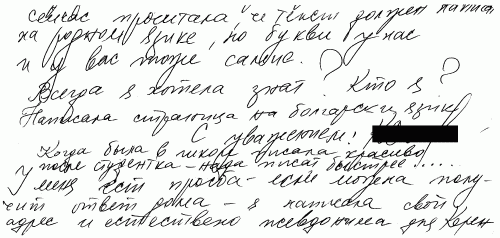 сейчас прочитала, че текст должен написа
на родном языке, но букви у нас
и у вас тоже самие.
Всегда я хотела знат? Кто я?
Написала страница на болгарски языке
С уважением!
Когда была в школе писала красиво,
после студентка - надо писат быстрее.....
У меня ест просба - если можена полу-
чит ответ дома - я написала свой
адрес и естествено псевдонима для